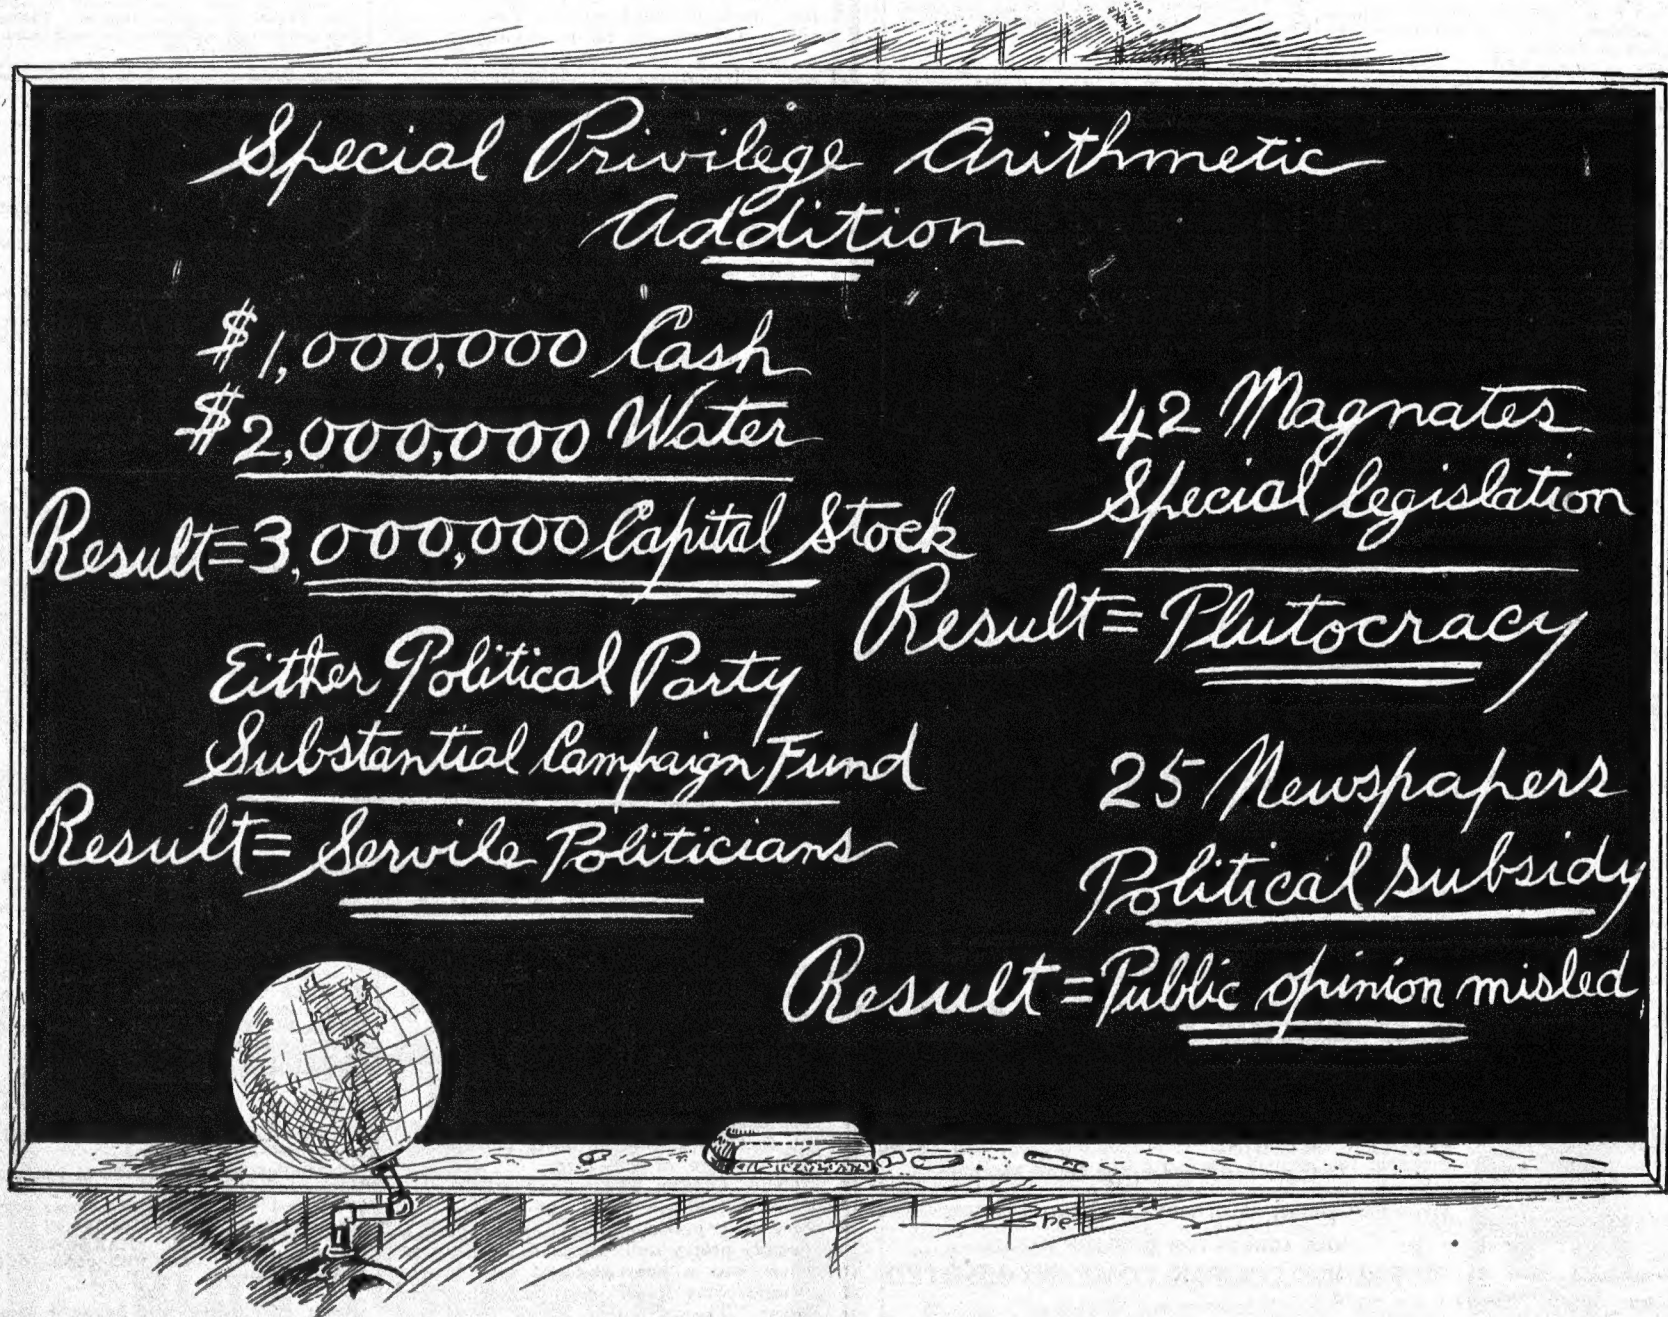 Special Privilege Arithmetic
Addition
$1,000,000 Cash
$2,000,000 Water
Result=3,000,000 Capital Stock
Either Political Party
Substantial Campaign Fund
Result= Servile Politicians
42 Magnates
Special legislation
Result= Plutocracy
25 Newspapers
Political subsidy
Result = Public opinion misled